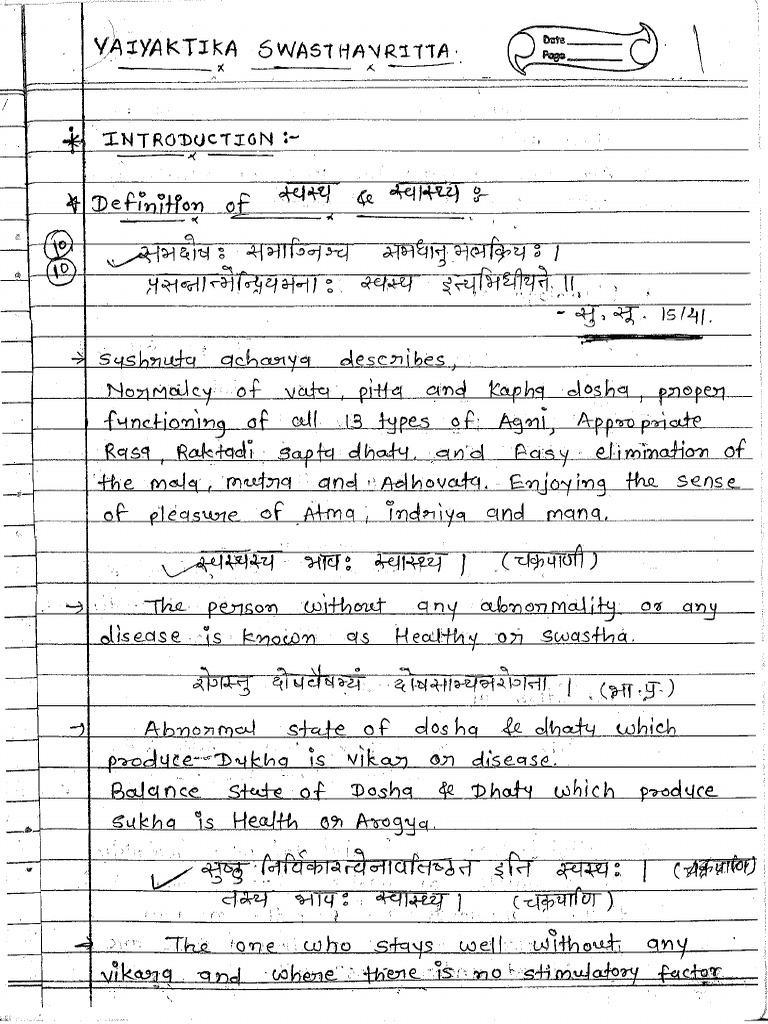 VAIYAKTIKA SWASTHAVRITTA.
Date
Page
1
* INTRODUCTION :-
* Definition of स्वस्थ & स्वास्थ्य :
10
समदोषः समाग्निश्च समधातुमलक्रियः ।
10
प्रसन्नात्मेन्द्रियमनाः स्वस्थ इत्यभिधीयते ॥
- सु. सू. 15/41.
→ Sushruta acharya describes,
Normalcy of vata, pitta and Kapha dosha, proper
functioning of all 13 types of Agni, Appropriate
Rasa, Raktadi sapta dhatu and Easy elimination of
the mala, mutra and Adhovata. Enjoying the sense
of pleasure of Atma, indriya and mana.
स्वस्थस्य भावः स्वास्थ्य । (चक्रपाणी)
→ The person without any abnormality or any
disease is known as Healthy or swastha.
रोगस्तु दोषवैषम्यं दोषसाम्यमरोगता । (भा.प्र.)
→ Abnormal state of dosha & dhatu which
produce Dukha is vikar or disease.
Balance state of Dosha & Dhatu which produce
sukha is Health or Arogya.
सुष्ठु निर्विकारत्वेनावतिष्ठत इति स्वस्थः । (चक्रपाणि)
तस्य भावः स्वास्थ्य । (चक्रपाणि)
→ The one who stays well without any
vikara and where there is no stimulatory factor